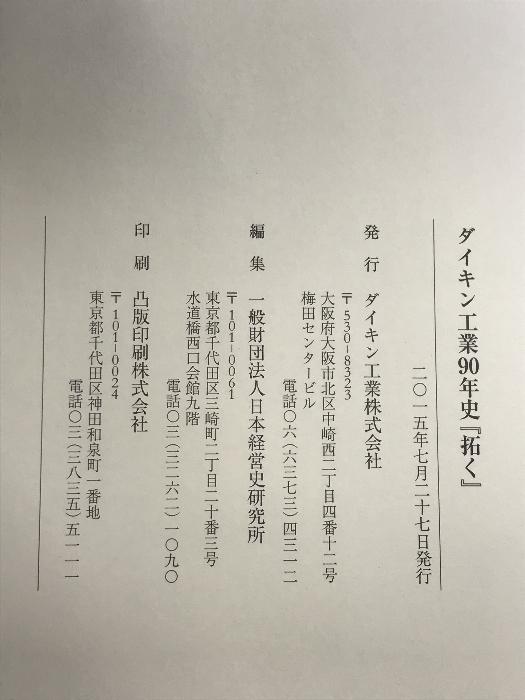 ダイキン工業90年史『拓く』
二〇一五年七月二十七日発行
発行 ダイキン工業株式会社
〒530-8323
大阪府大阪市北区中崎西二丁目四番十二号
梅田センタービル
電話〇六(六三七三)四三一二
編集 一般財団法人日本経営史研究所
〒101-0061
東京都千代田区三崎町二丁目二十番三号
水道橋西口会館九階
電話〇三(三二六二)一〇九〇
印刷 凸版印刷株式会社
〒101-0024
東京都千代田区神田和泉町一番地
電話〇三(三八三五)五一一一